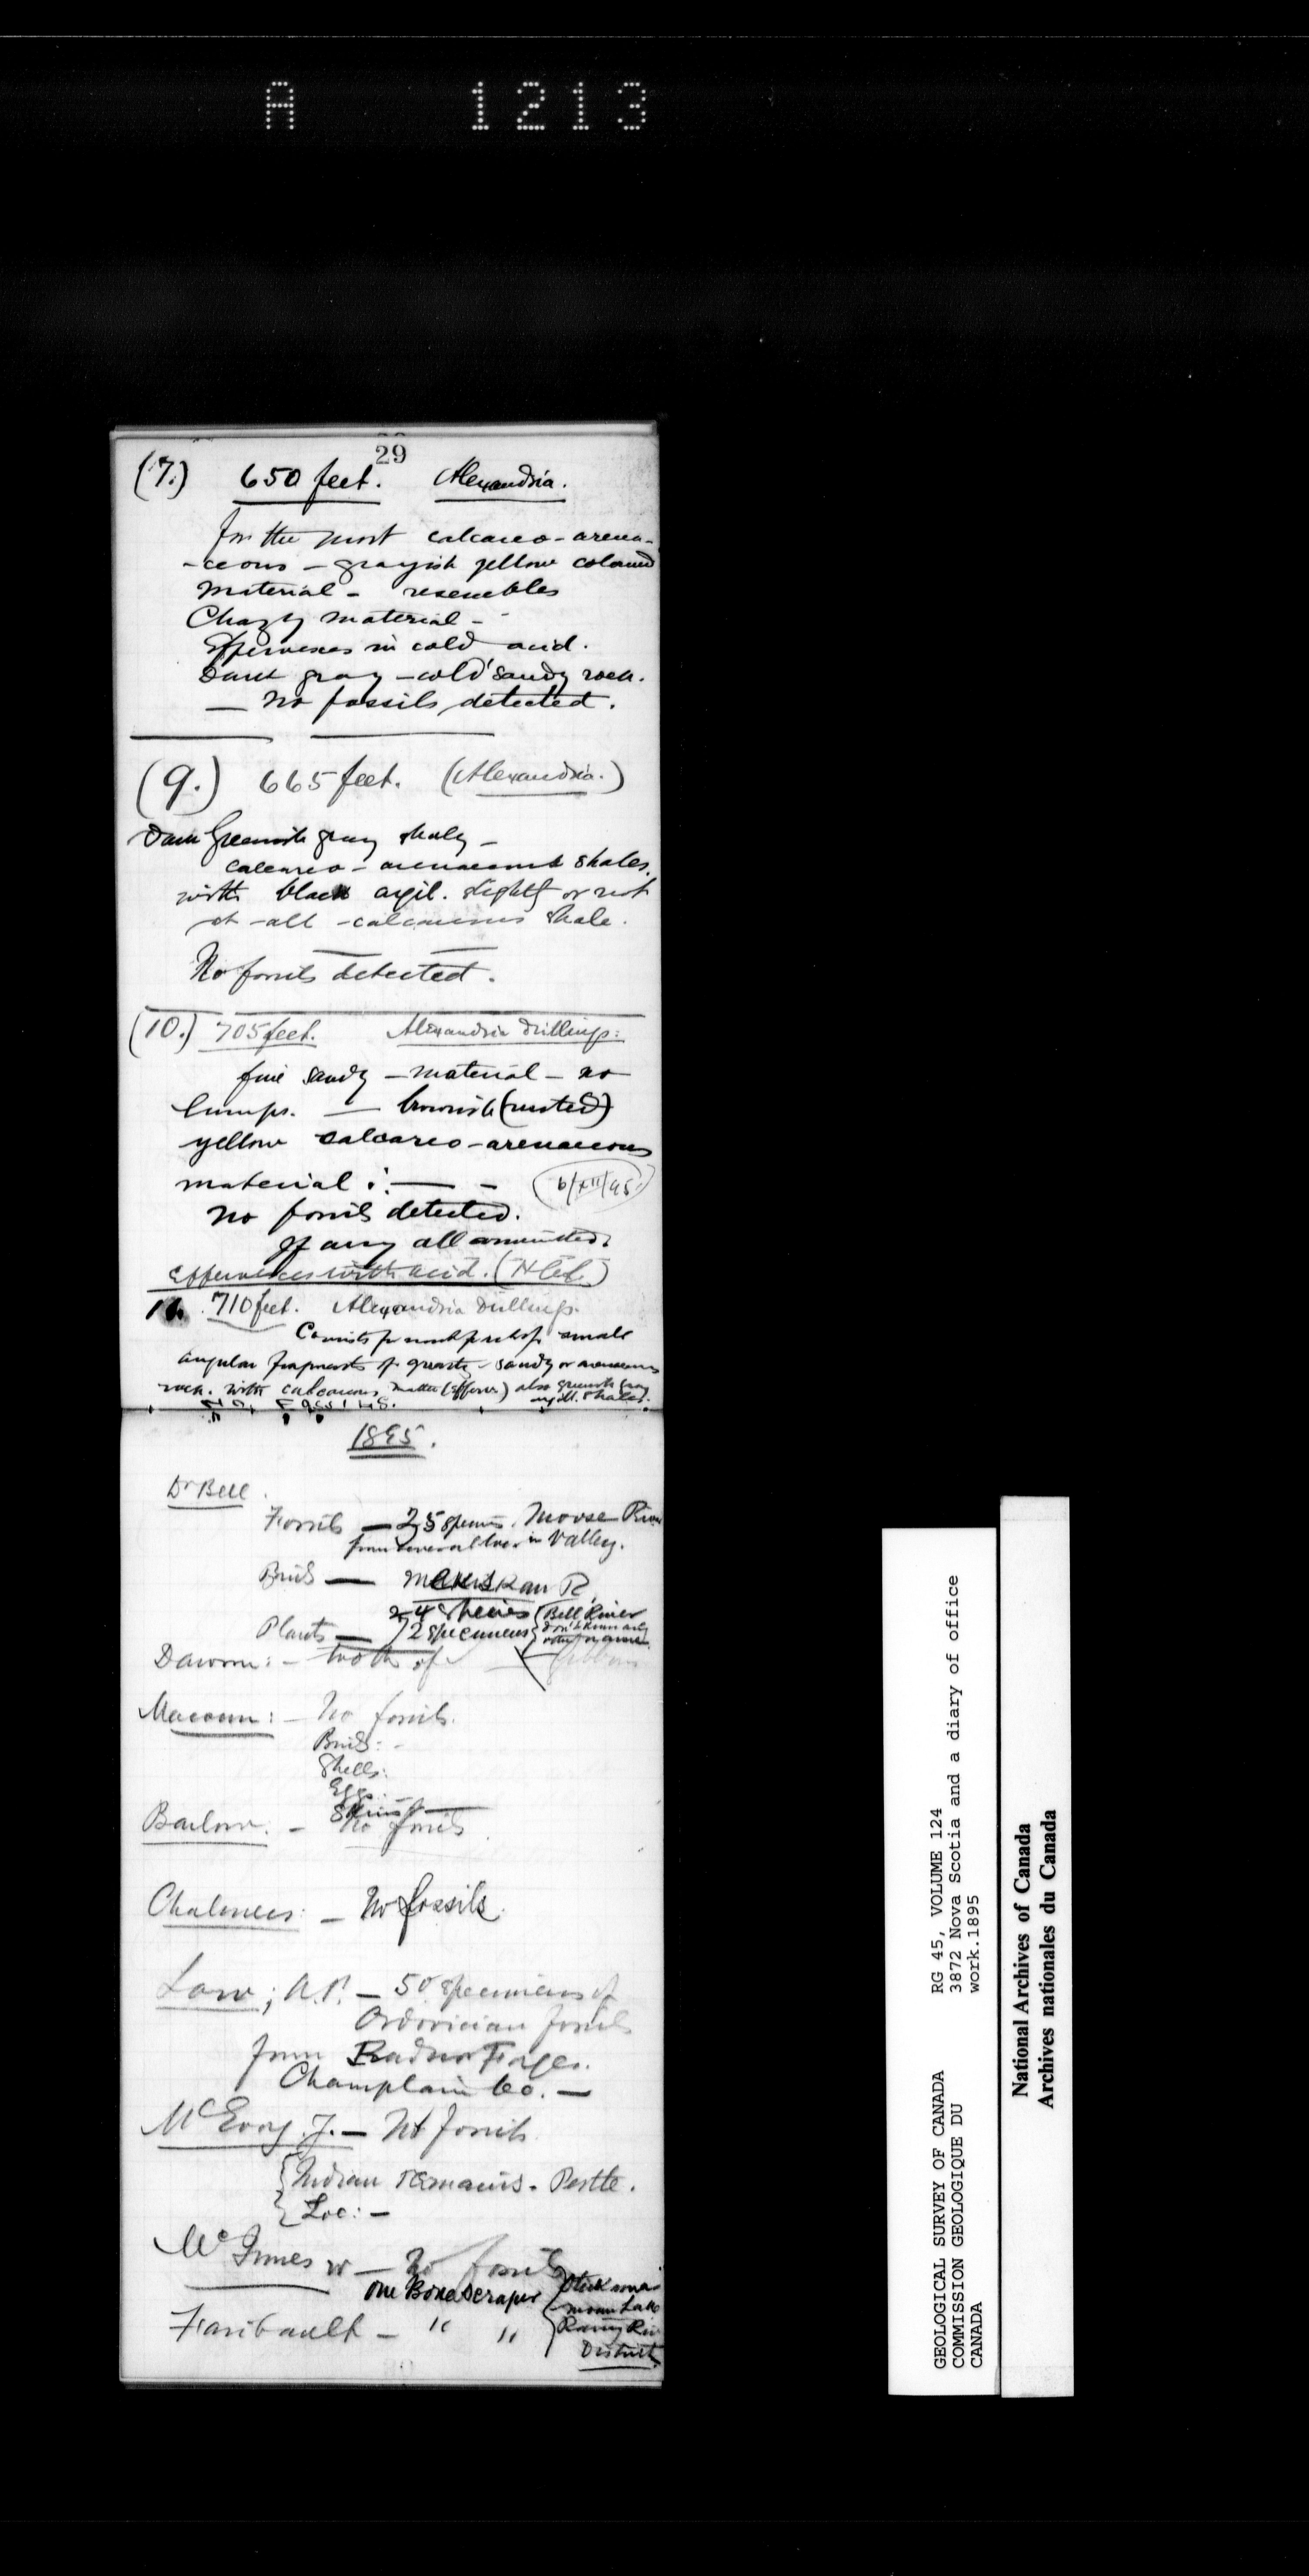 A 1213
29
(7.) 650 feet. Alexandria.
for the most calcareo-arena-
-ceous - grayish yellow coloured
material - resembles
Chazy material -
Effervesces in cold acid.
Dark gray - cold sandy rock.
— No fossils detected.
(9.) 665 feet. (Alexandria.)
Dark Greenish gray shaly -
calcareo-arenaceous shales.
with black argil. slightly or not
at all calcareous shale.
No fossils detected.
(10.) 705 feet. Alexandria Drillings:
fine sandy - material - no
lumps. — brownish (rusted)
yellow calcareo-arenaceous
material : — -
(6/XII/95)
No fossils detected.
If any all
effervesces with acid. (HCl.)
11. 710 feet. Alexandria Drillings.
Consists for most part of small
angular fragments of quartz - sandy or arenaceous
rock. with calcareous matter (efferv.) also greenish gray
argill. shales.
No Fossils.
1895.
Dr Bell.
Fossils — 25 specimens. Moose River
from several loc. in Valley.
Birds —
24 Species
Plants — 72 specimens { Bell River
don't know any
other name
Dawson: - tooth of
Macoun: - No fossils.
Birds: -
Shells:
Eggs: -
Skins
Barlow. - No fossils
Chalmers: - No fossils.
Low; A.P. — 50 specimens of
Ordovician fossils
from Radnor Forges.
Champlain Co. —
McEvoy. J. — No fossils
{ Indian remains. Pestle.
{ Loc: -
McInnes W — No fossils
One Bone Scraper
Lake
Rainy River
District.
Faribault - " "
GEOLOGICAL SURVEY OF CANADA
COMMISSION GEOLOGIQUE DU
CANADA
RG 45, VOLUME 124
3872 Nova Scotia and a diary of office
work.1895
National Archives of Canada
Archives nationales du Canada